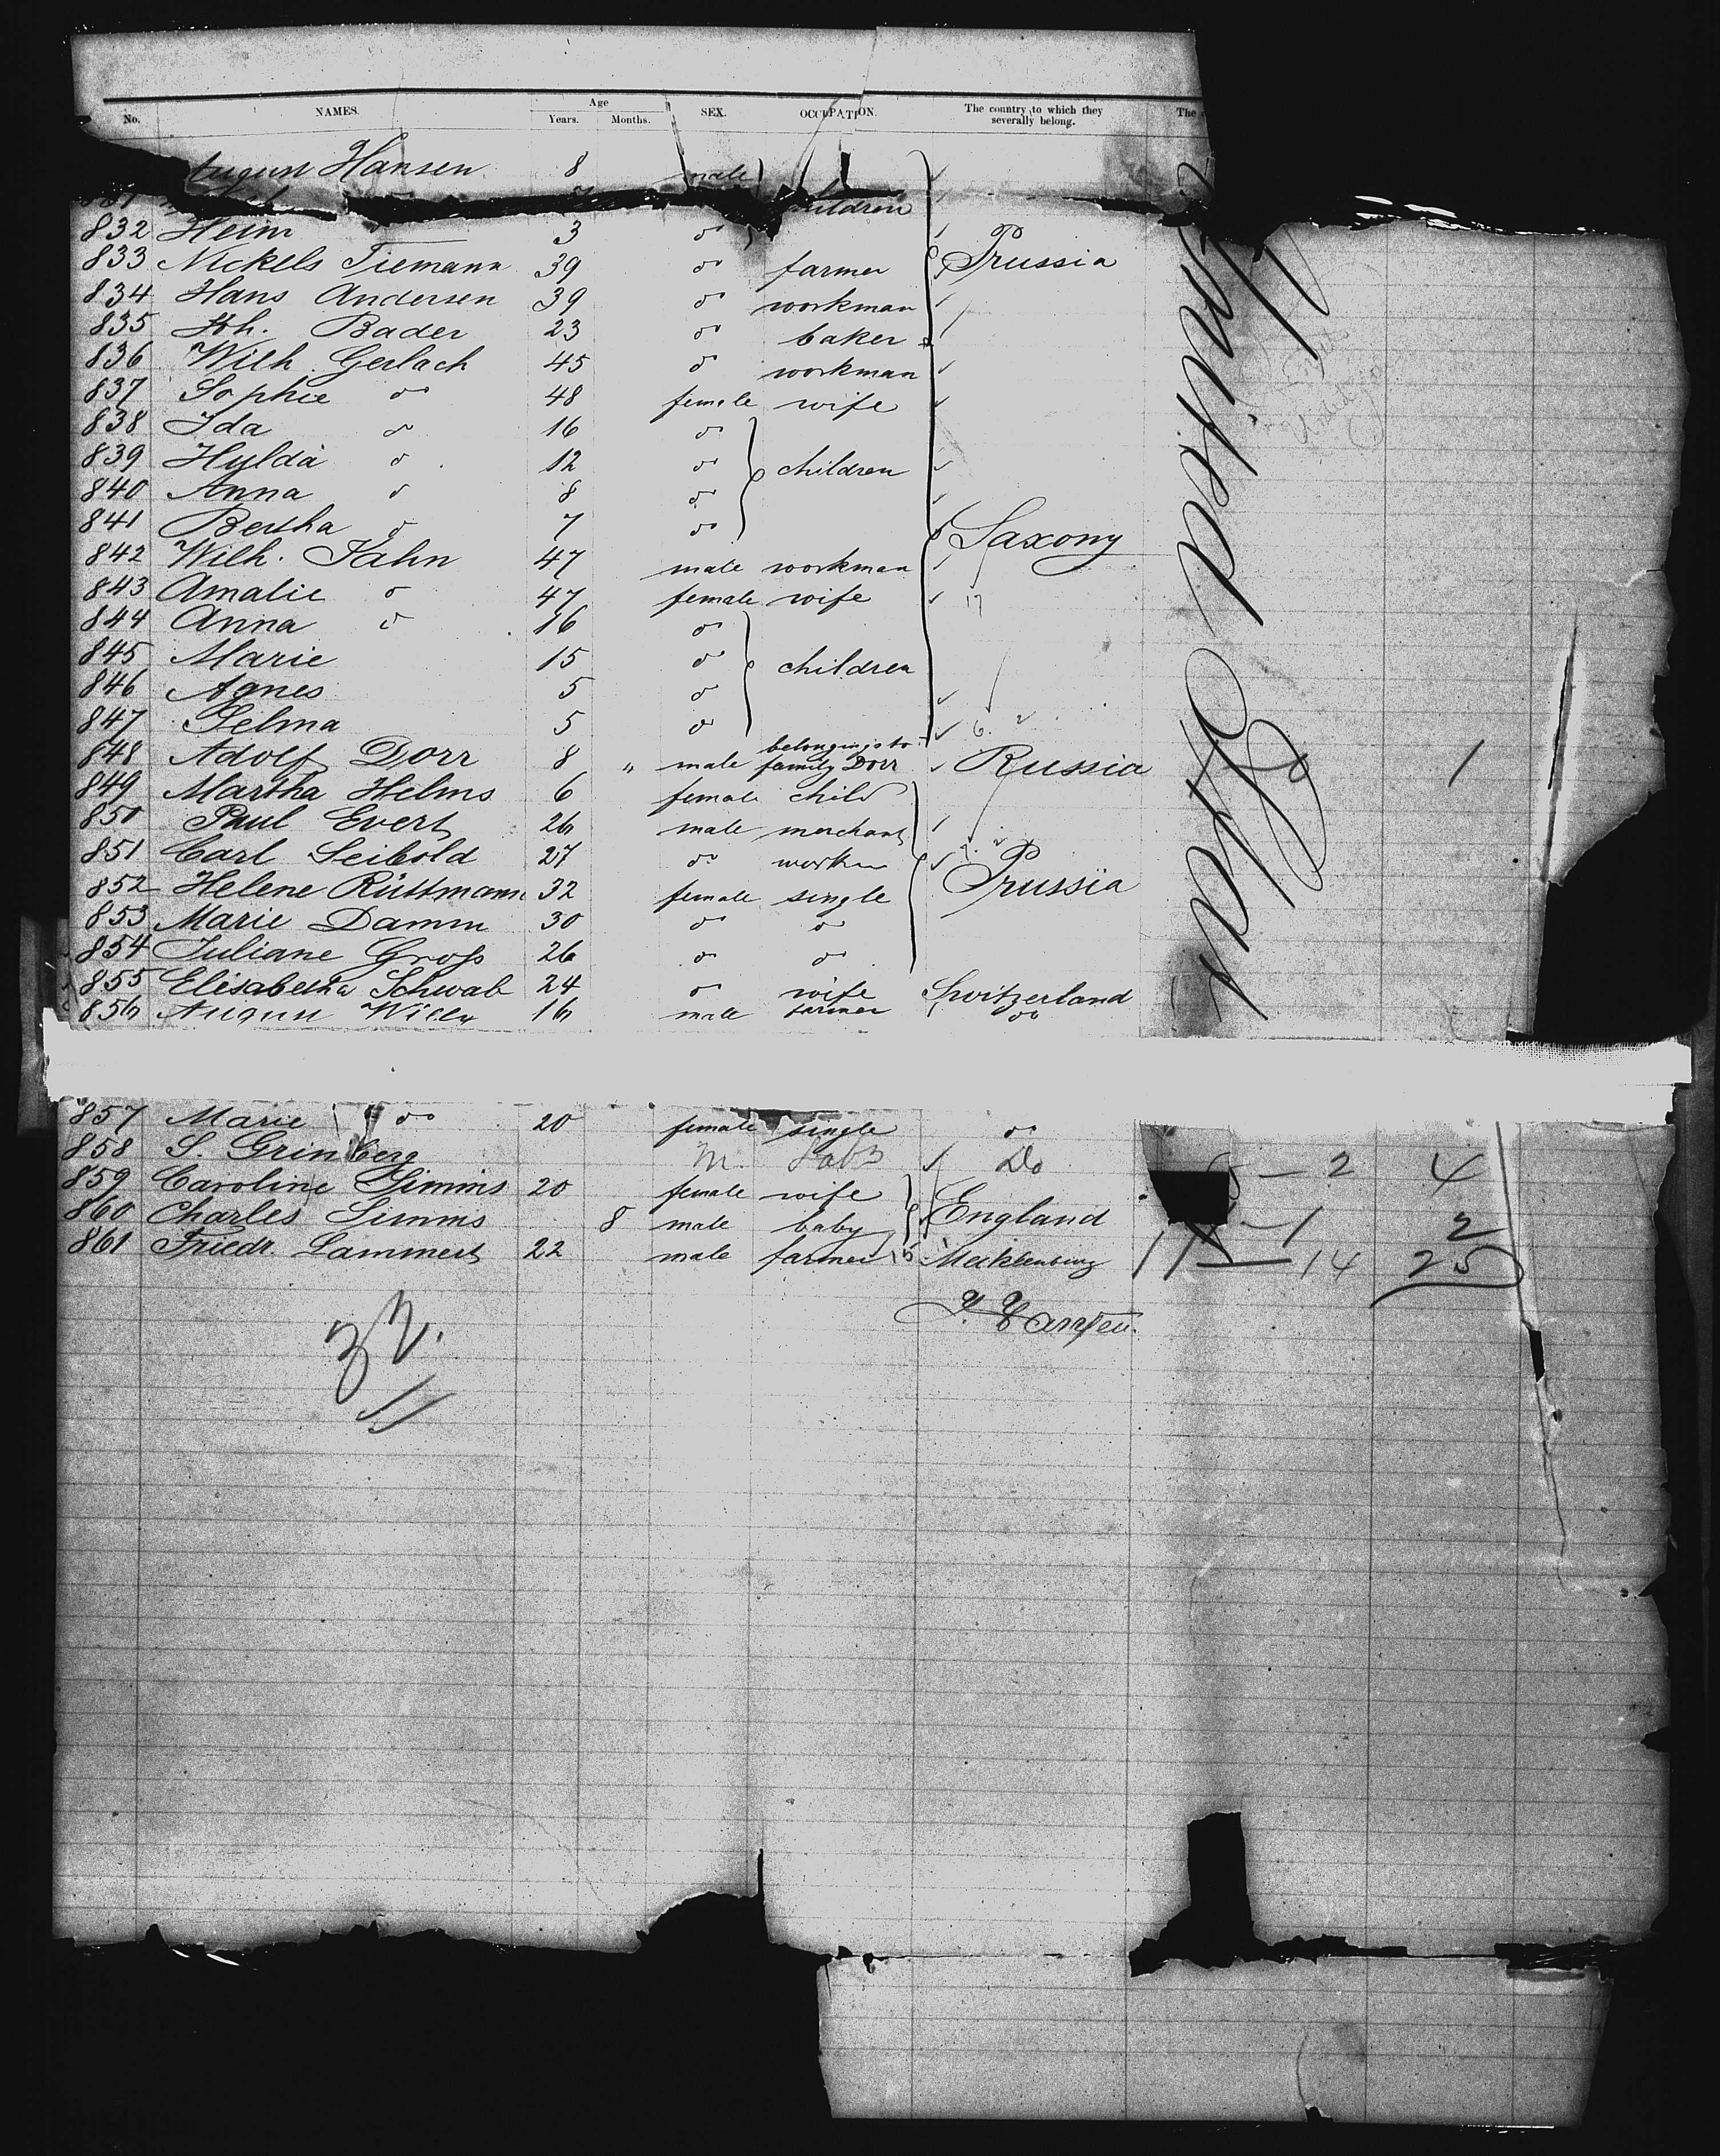 No. NAMES. Age Years. Months. SEX. OCCUPATION. The country to which they severally belong. The
August Hansen 8 male
831 children
832 Heim 3 do
833 Nickels Tiemann 39 do farmer Prussia
834 Hans Andersen 39 do workman
835 Joh. Bader 23 do baker
836 Wilh. Gerlach 45 do workman
837 Sophie do 48 female wife
838 Ida do 16 do
839 Hulda do 12 do children
840 Anna do 8 do
841 Bertha do 7 do Saxony
842 Wilh. Jahn 47 male workman
843 Amalie do 47 female wife 17
844 Anna do 16 do
845 Marie 15 do children
846 Agnes 5 do
847 Selma 5 do 6.
848 Adolf Dorr 8 " male belonging to family Dorr Russia 1
849 Martha Helms 6 female child
850 Paul Evert 26 male merchant
851 Carl Seibold 27 do worker
852 Helene Rüttmann 32 female single Prussia
853 Marie Damm 30 do do
854 Juliane Gross 26 do do
855 Elisabetha Schwab 24 do wife Switzerland
856 August Willy 16 male farmer do
857 Marie do 20 female single do
858 S. Grinberg M. Labr Do 2 4
859 Caroline Simms 20 female wife
860 Charles Simms 8 male baby England 1 2
861 Friedr. Lammert 22 male farmer 5 Mecklenburg 14 25
32.
United States